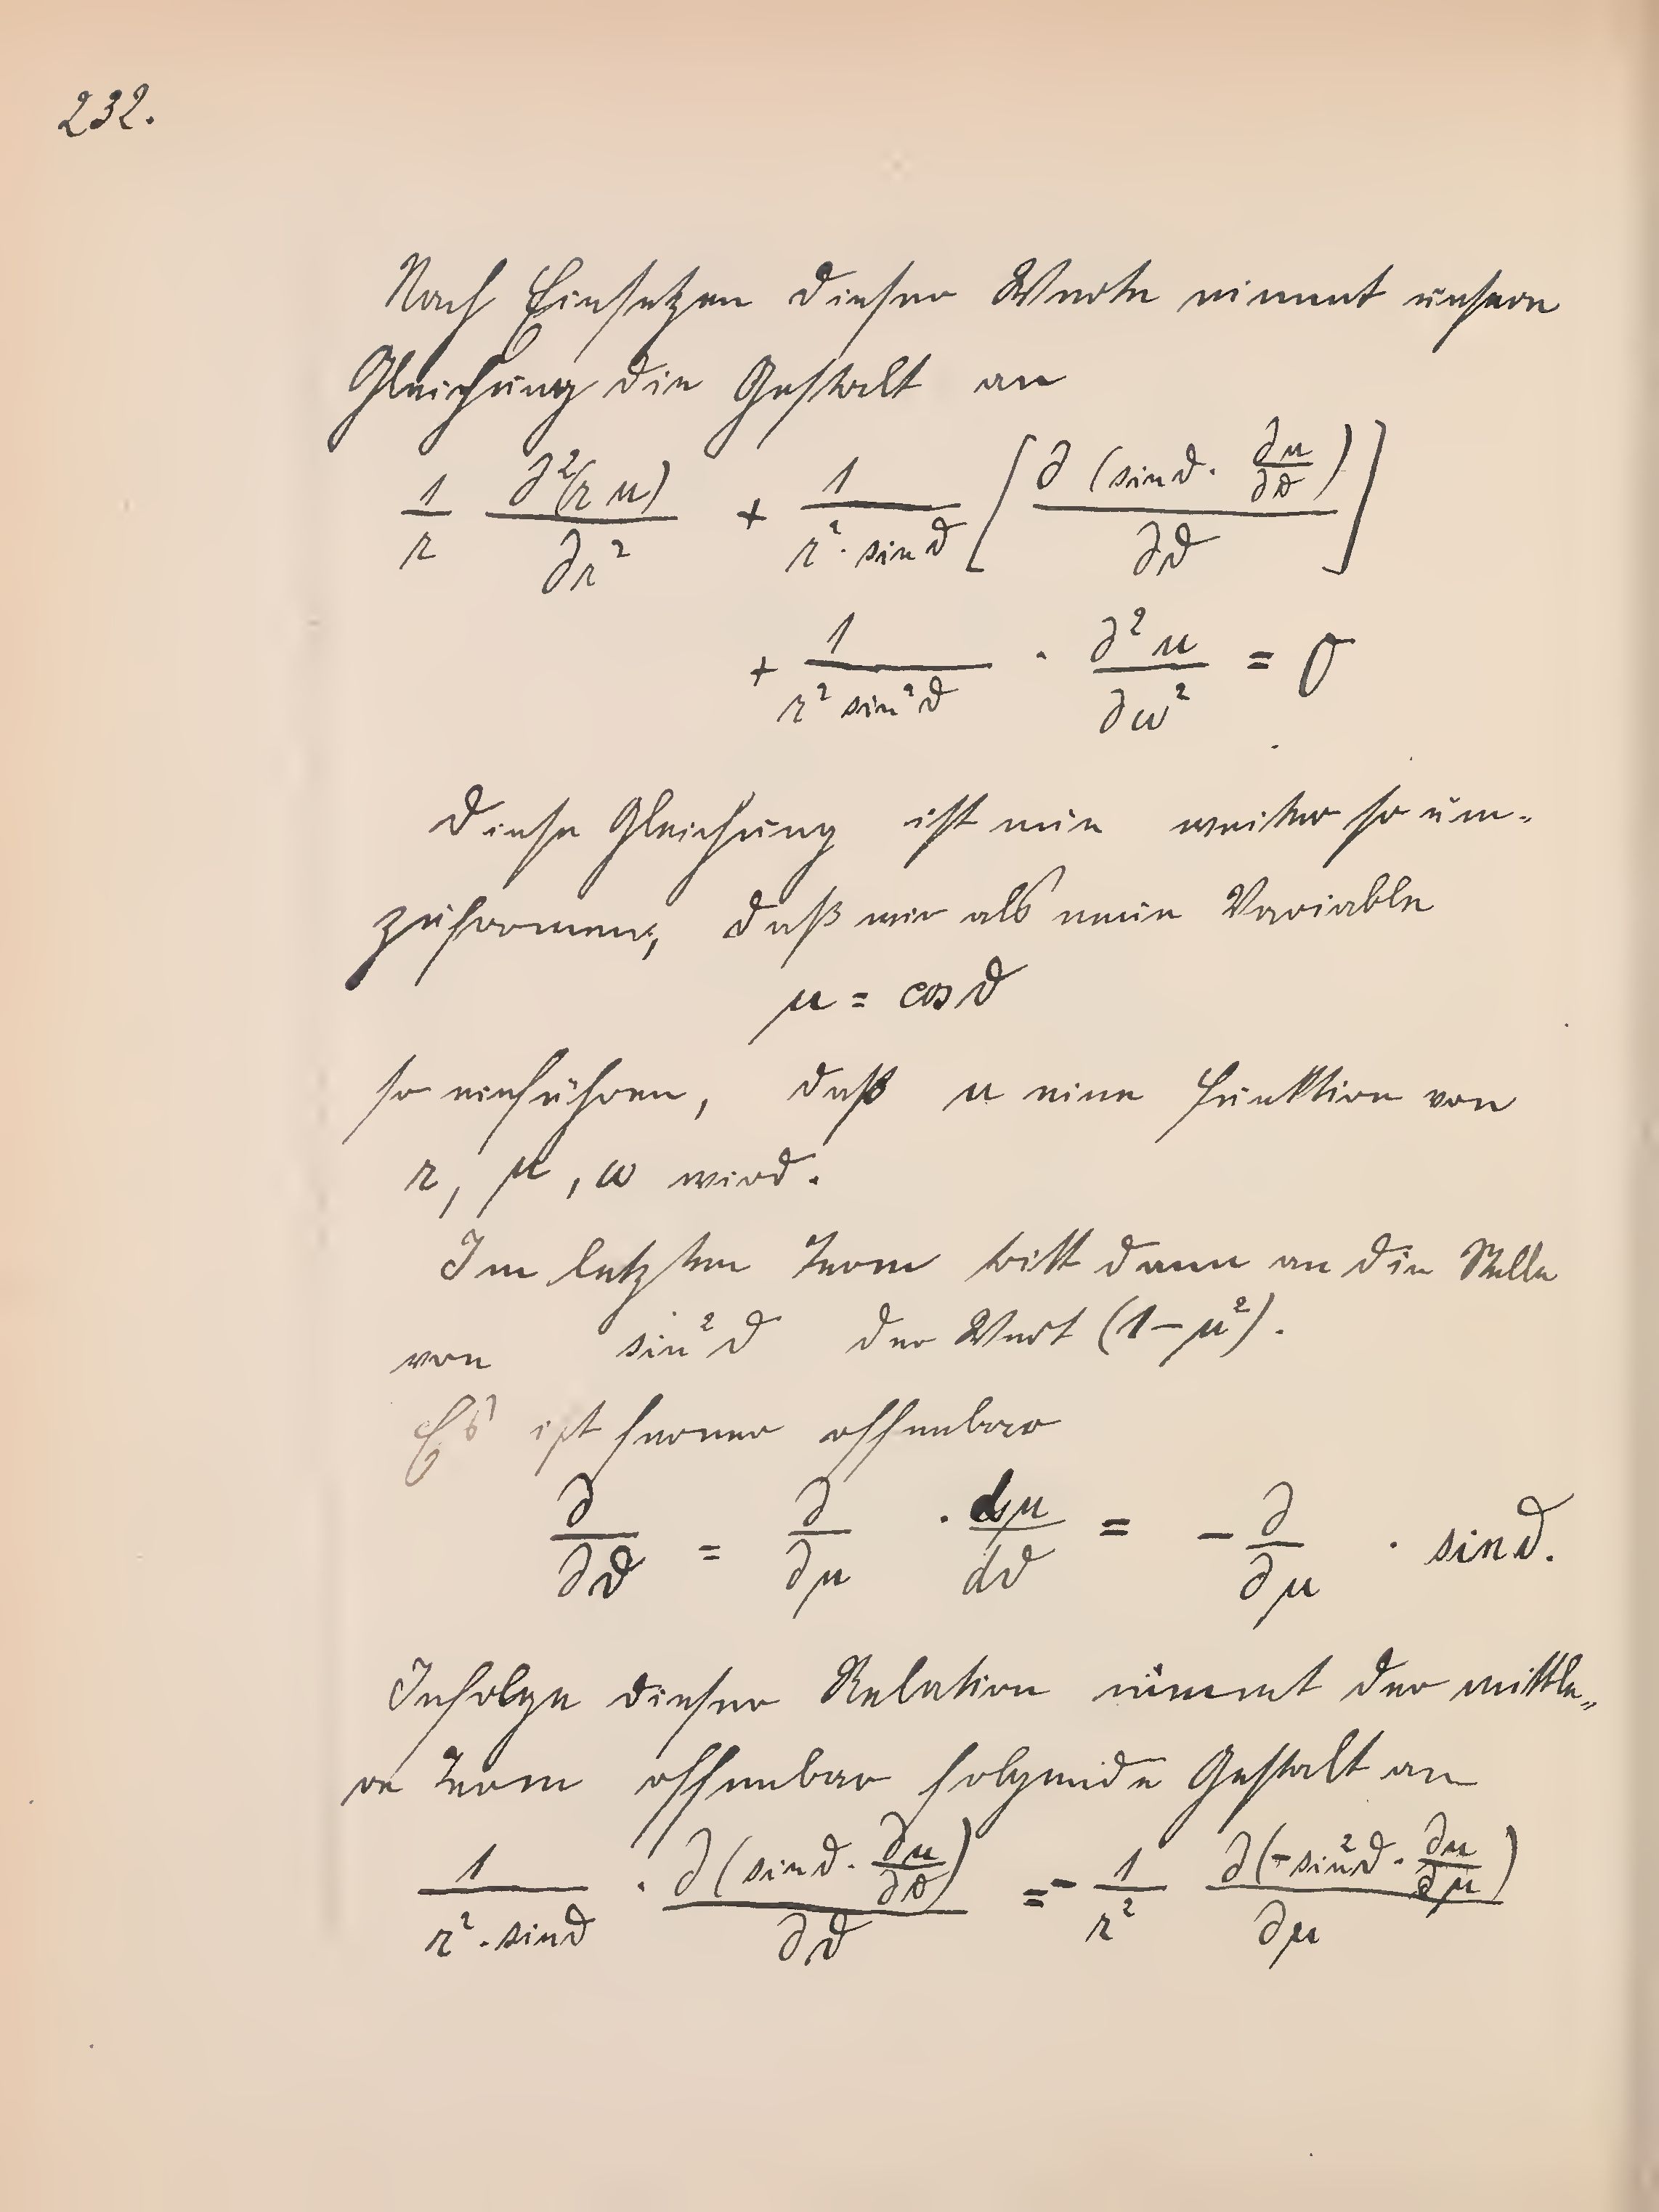 232.
Nach Einsetzen dieser Werte nimmt unsere
Gleichung die Gestalt an
1/r ∂²(r u)/∂r² + 1/(r² · sin ϑ) [∂ (sin ϑ · ∂u/∂ϑ)/∂ϑ]
+ 1/(r² sin² ϑ) · ∂² u/∂ω² = 0
Diese Gleichung ist nun weiter so um-
zuformen, daß wir als neue Variable
μ = cos ϑ
so einführen, daß u eine Funktion von
r, μ, ω wird.
Im letzten Term tritt dann an die Stelle
von sin² ϑ der Wert (1 – μ²).
Es ist ferner offenbar
∂/∂ϑ = ∂/∂μ · dμ/dϑ = – ∂/∂μ · sin ϑ.
Infolge dieser Relation nimmt der mittle-
re Term offenbar folgende Gestalt an
1/(r² · sin ϑ) · ∂ (sin ϑ · ∂u/∂ϑ)/∂ϑ = – 1/r² ∂(– sin² ϑ · ∂u/∂μ)/∂μ